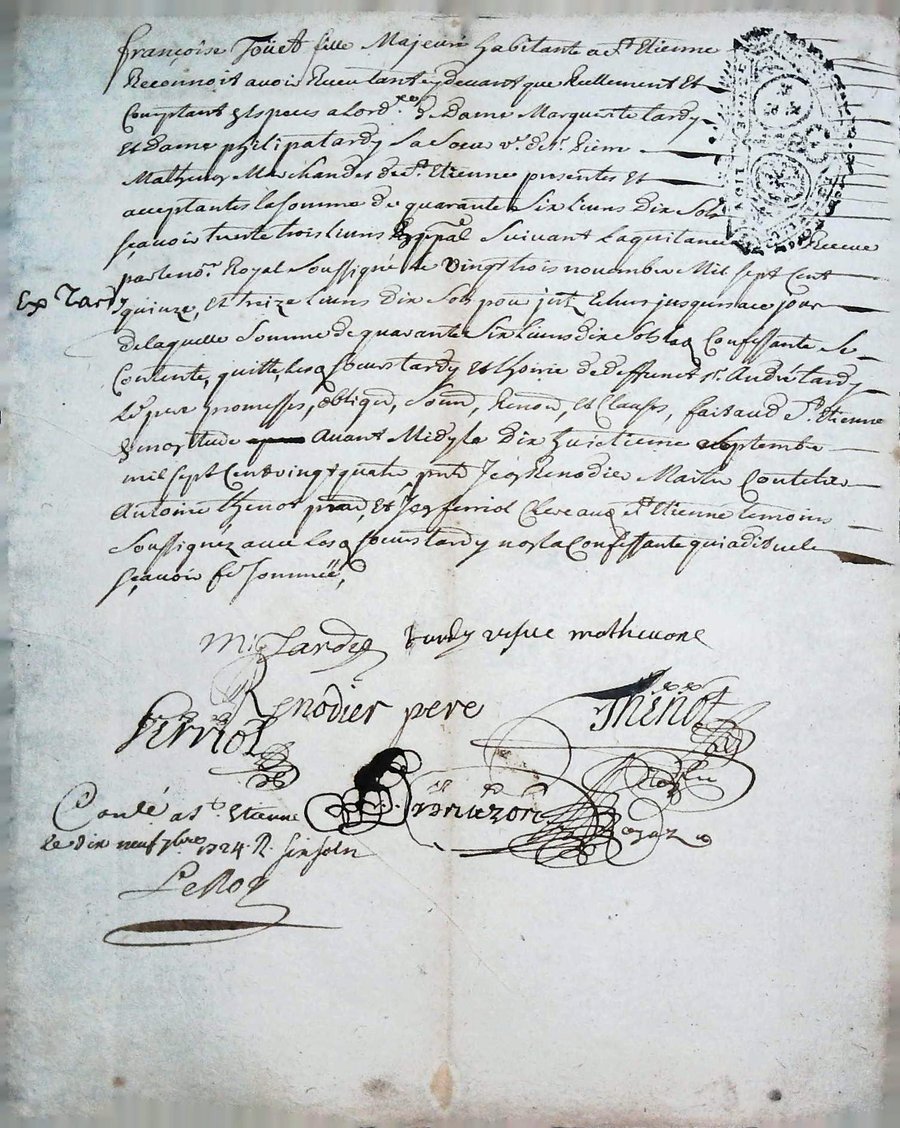 françoise Joüet fille Majeure habitante a St. Etienne
Reconnoit avoir Receu tant cydevant que Reellement Et
Comptant Especes a lord.re de Dame Marguerite tardy
Et Dame philipa tardy Sa Soeur ve. de Sr. Pierre
Mathevon Marchandes de St. Etienne presentes Et
acceptantes la Somme de quarante Six livres Dix Sols
sçavoir trente trois livres de ppal Suivant la quitance Receue
par le nore. Royal Soussigné le vingt trois novembre Mil Sept Cent
Ex Tardy
quinze, et treize livres dix Sols pour jusques a ce jour
de laquelle Somme de quarante Six livres dix Sols lad. Confessante Se
Contente, quitte lesd. Soeurs tardy et de deffunct Sr. André tardy
promesses, obliger, Soum, Renon, et Clauses, fait aud. St. Etienne
Etude Avant Midy le Dix huictieme Septembre
mil Sept Cent vingt quatre, pnts Renodier Maitre
Antoine thenot prat, et ferriol Clerc aud. St. Etienne temoins
Soussignez avec lesd. Soeurs tardy non la Confessante qui a dit ne le
sçavoir de ce Sommée,
M: Tardy tardy vefve mathevone
Renodier pere
Thenot
ferriol
Conlé a St. Etienne
le dix neuf 7bre 1724 R. Six soln
LeRoy